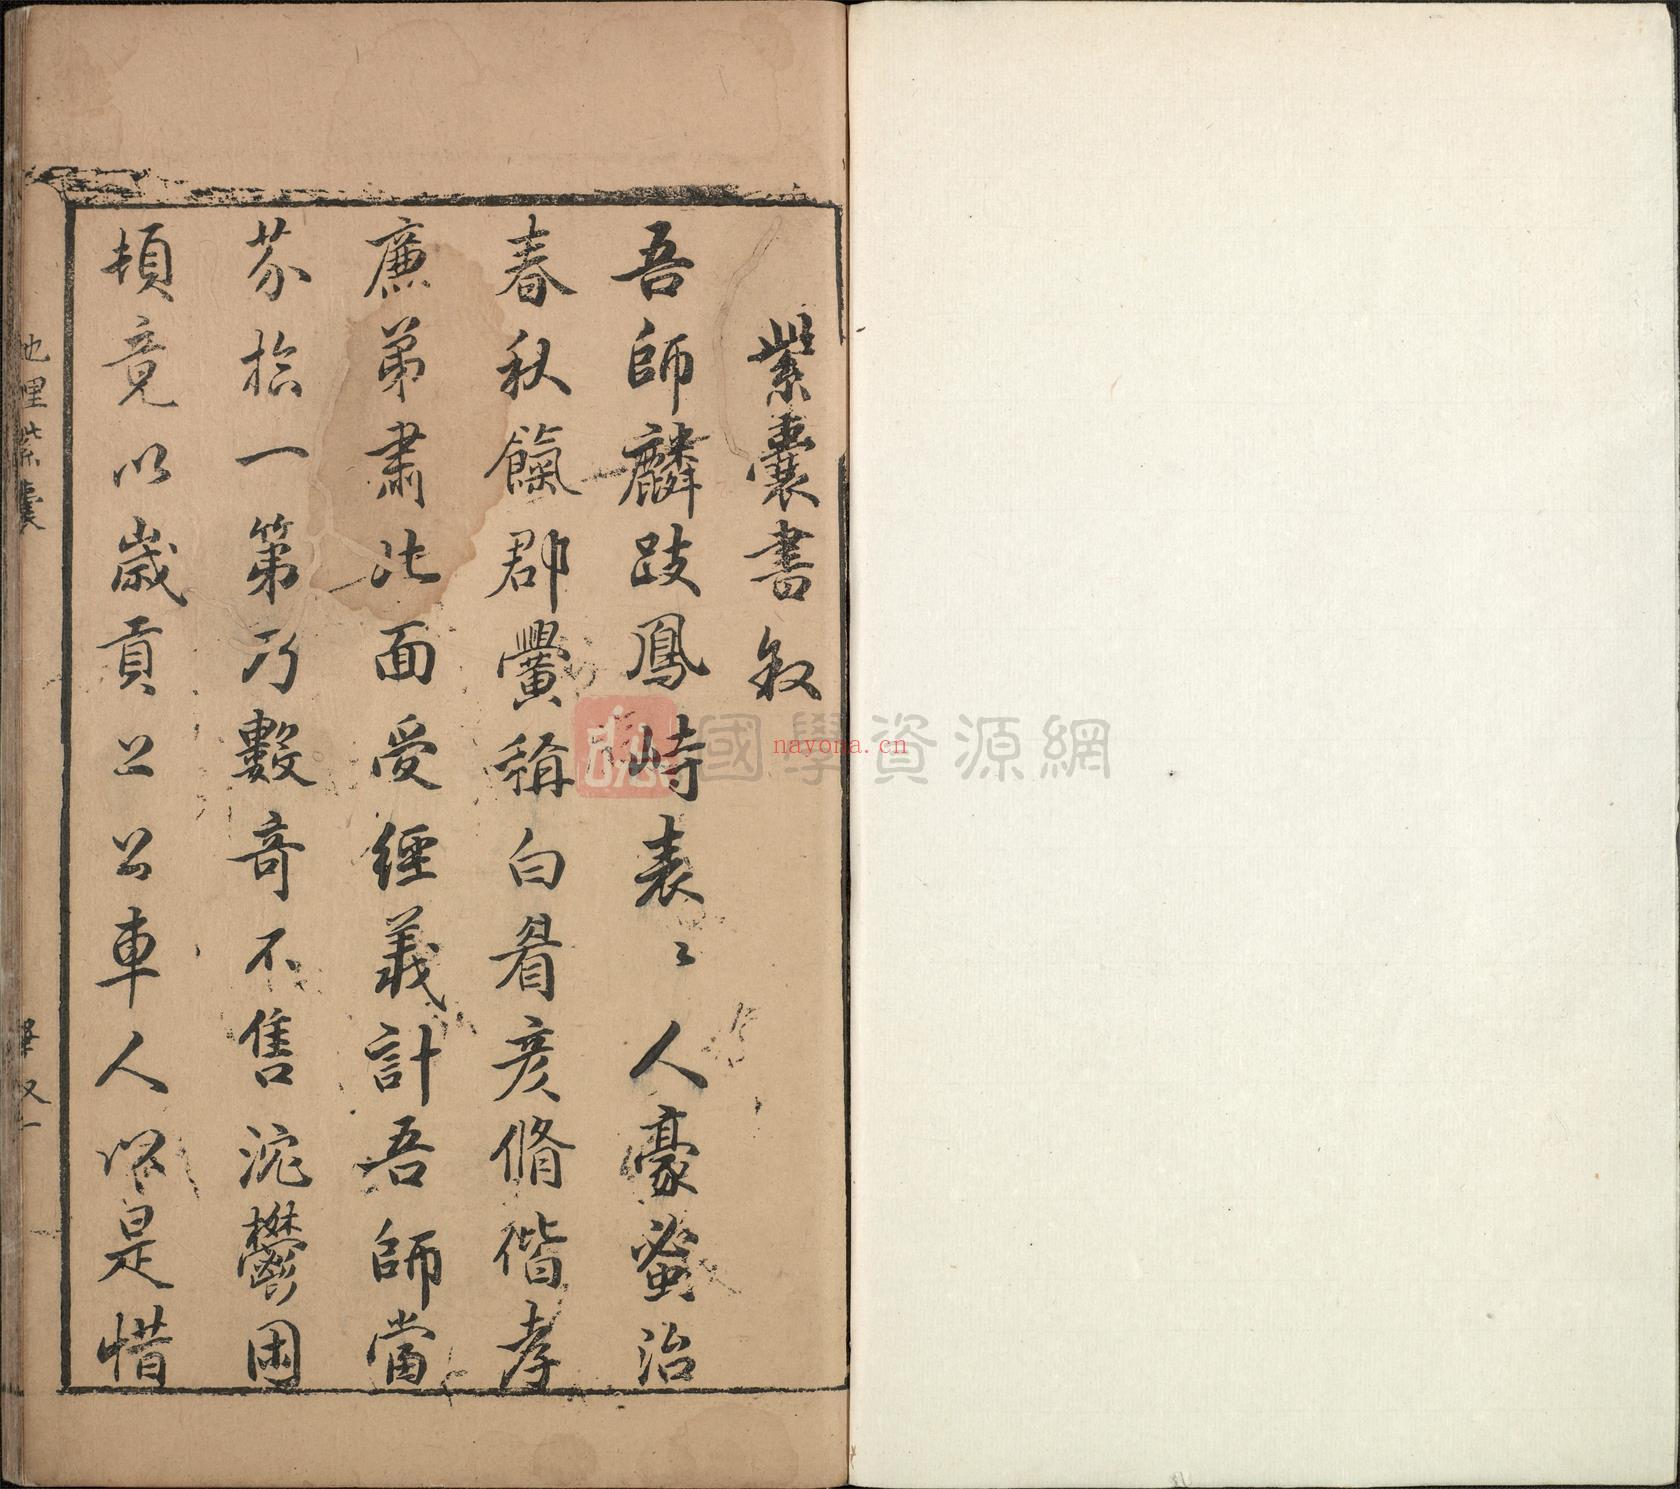 紫囊書叙
吾師麟跂鳳峙表〻人豪蚤治
春秋餼郡黌稱白眉彦脩偕孝
廉弟肅北面受經義計吾師當
芥拾一第乃數奇不售沱鬱困
頓竟以歲貢上公車人以是惜
地理紫囊
叙一
國學資源網
nayona.cn